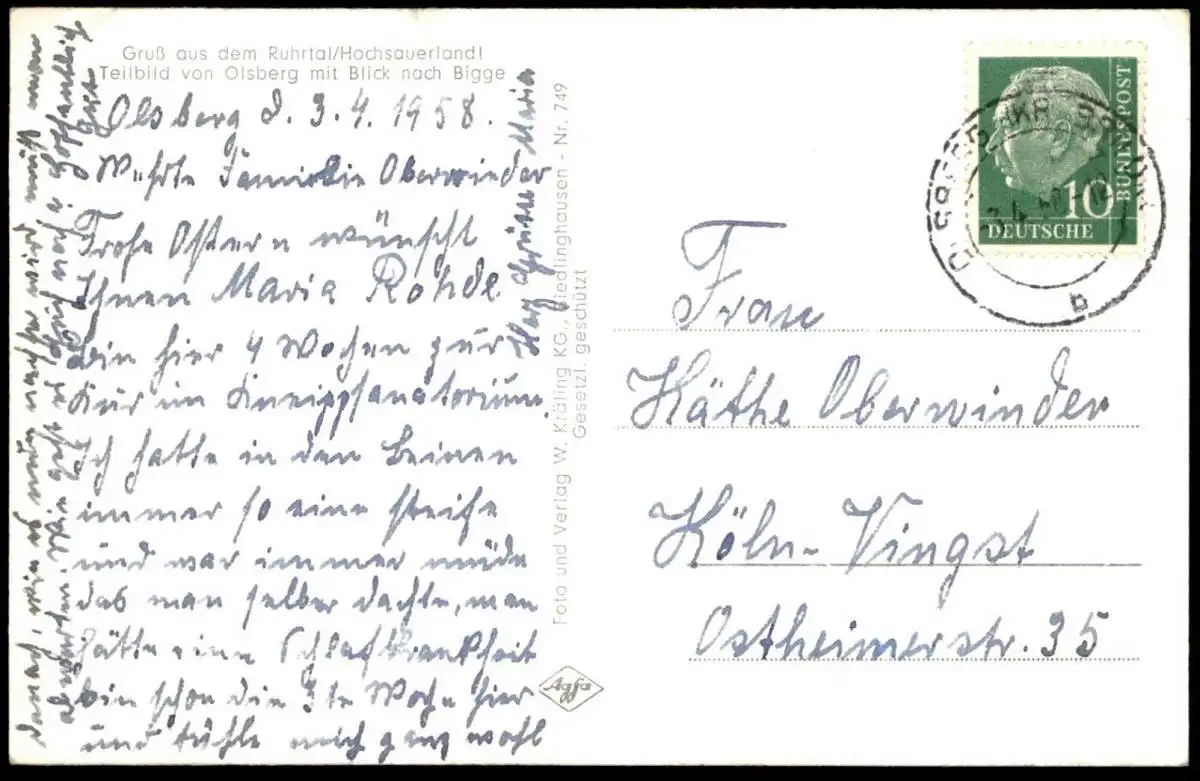 Gruß aus dem Ruhrtal/Hochsauerland!
Teilbild von Olsberg mit Blick nach Bigge
Olsberg d. 3.4.1958.
Werte Familie Oberwinder
Frohe Ostern wünscht
Ihnen Maria Rohde
bin hier 4 Wochen zur
Kur im Kneippsanatorium.
Ich hatte in den Beinen
immer so eine steife
und war immer müde
das man selber dachte, man
hätte eine Schlafkrankheit
bin schon die 3te Woche hier
und fühle mich ganz wohl
danach, wie
abwarten. Wie geht es hoffentlich
gut
Herz. Grüße Maria
Foto und Verlag W. Kräling KG., Siedlinghausen - Nr. 749
Gesetzl. geschützt
Agfa
DEUTSCHE
BUNDESPOST
10
b
Frau
Käthe Oberwinder
Köln-Vingst
Ostheimerstr. 35